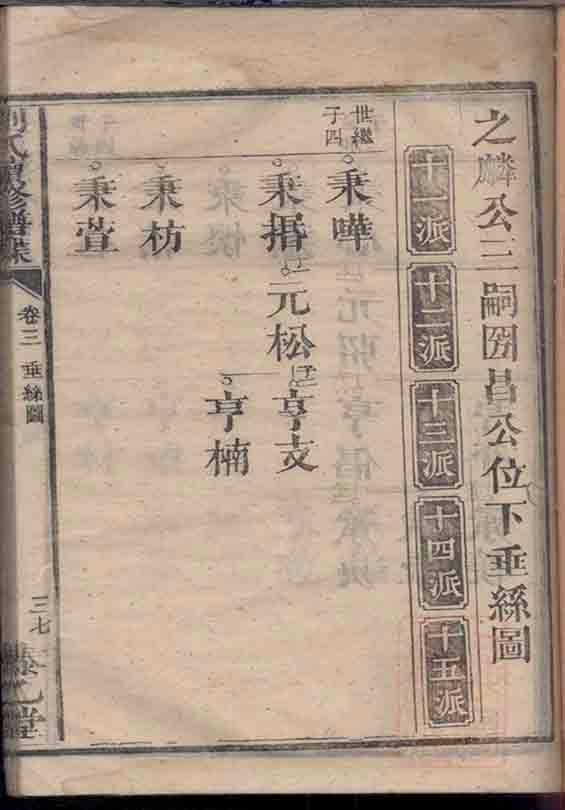 之麟公三嗣圀昌公位下垂絲圖
十一派
十二派
十三派
十四派
十五派
世繼
子四
秉嘩
秉揩
元松
亨支
亨楠
秉枋
秉萱
氏續修譜
卷三 垂絲圖
三七
堂